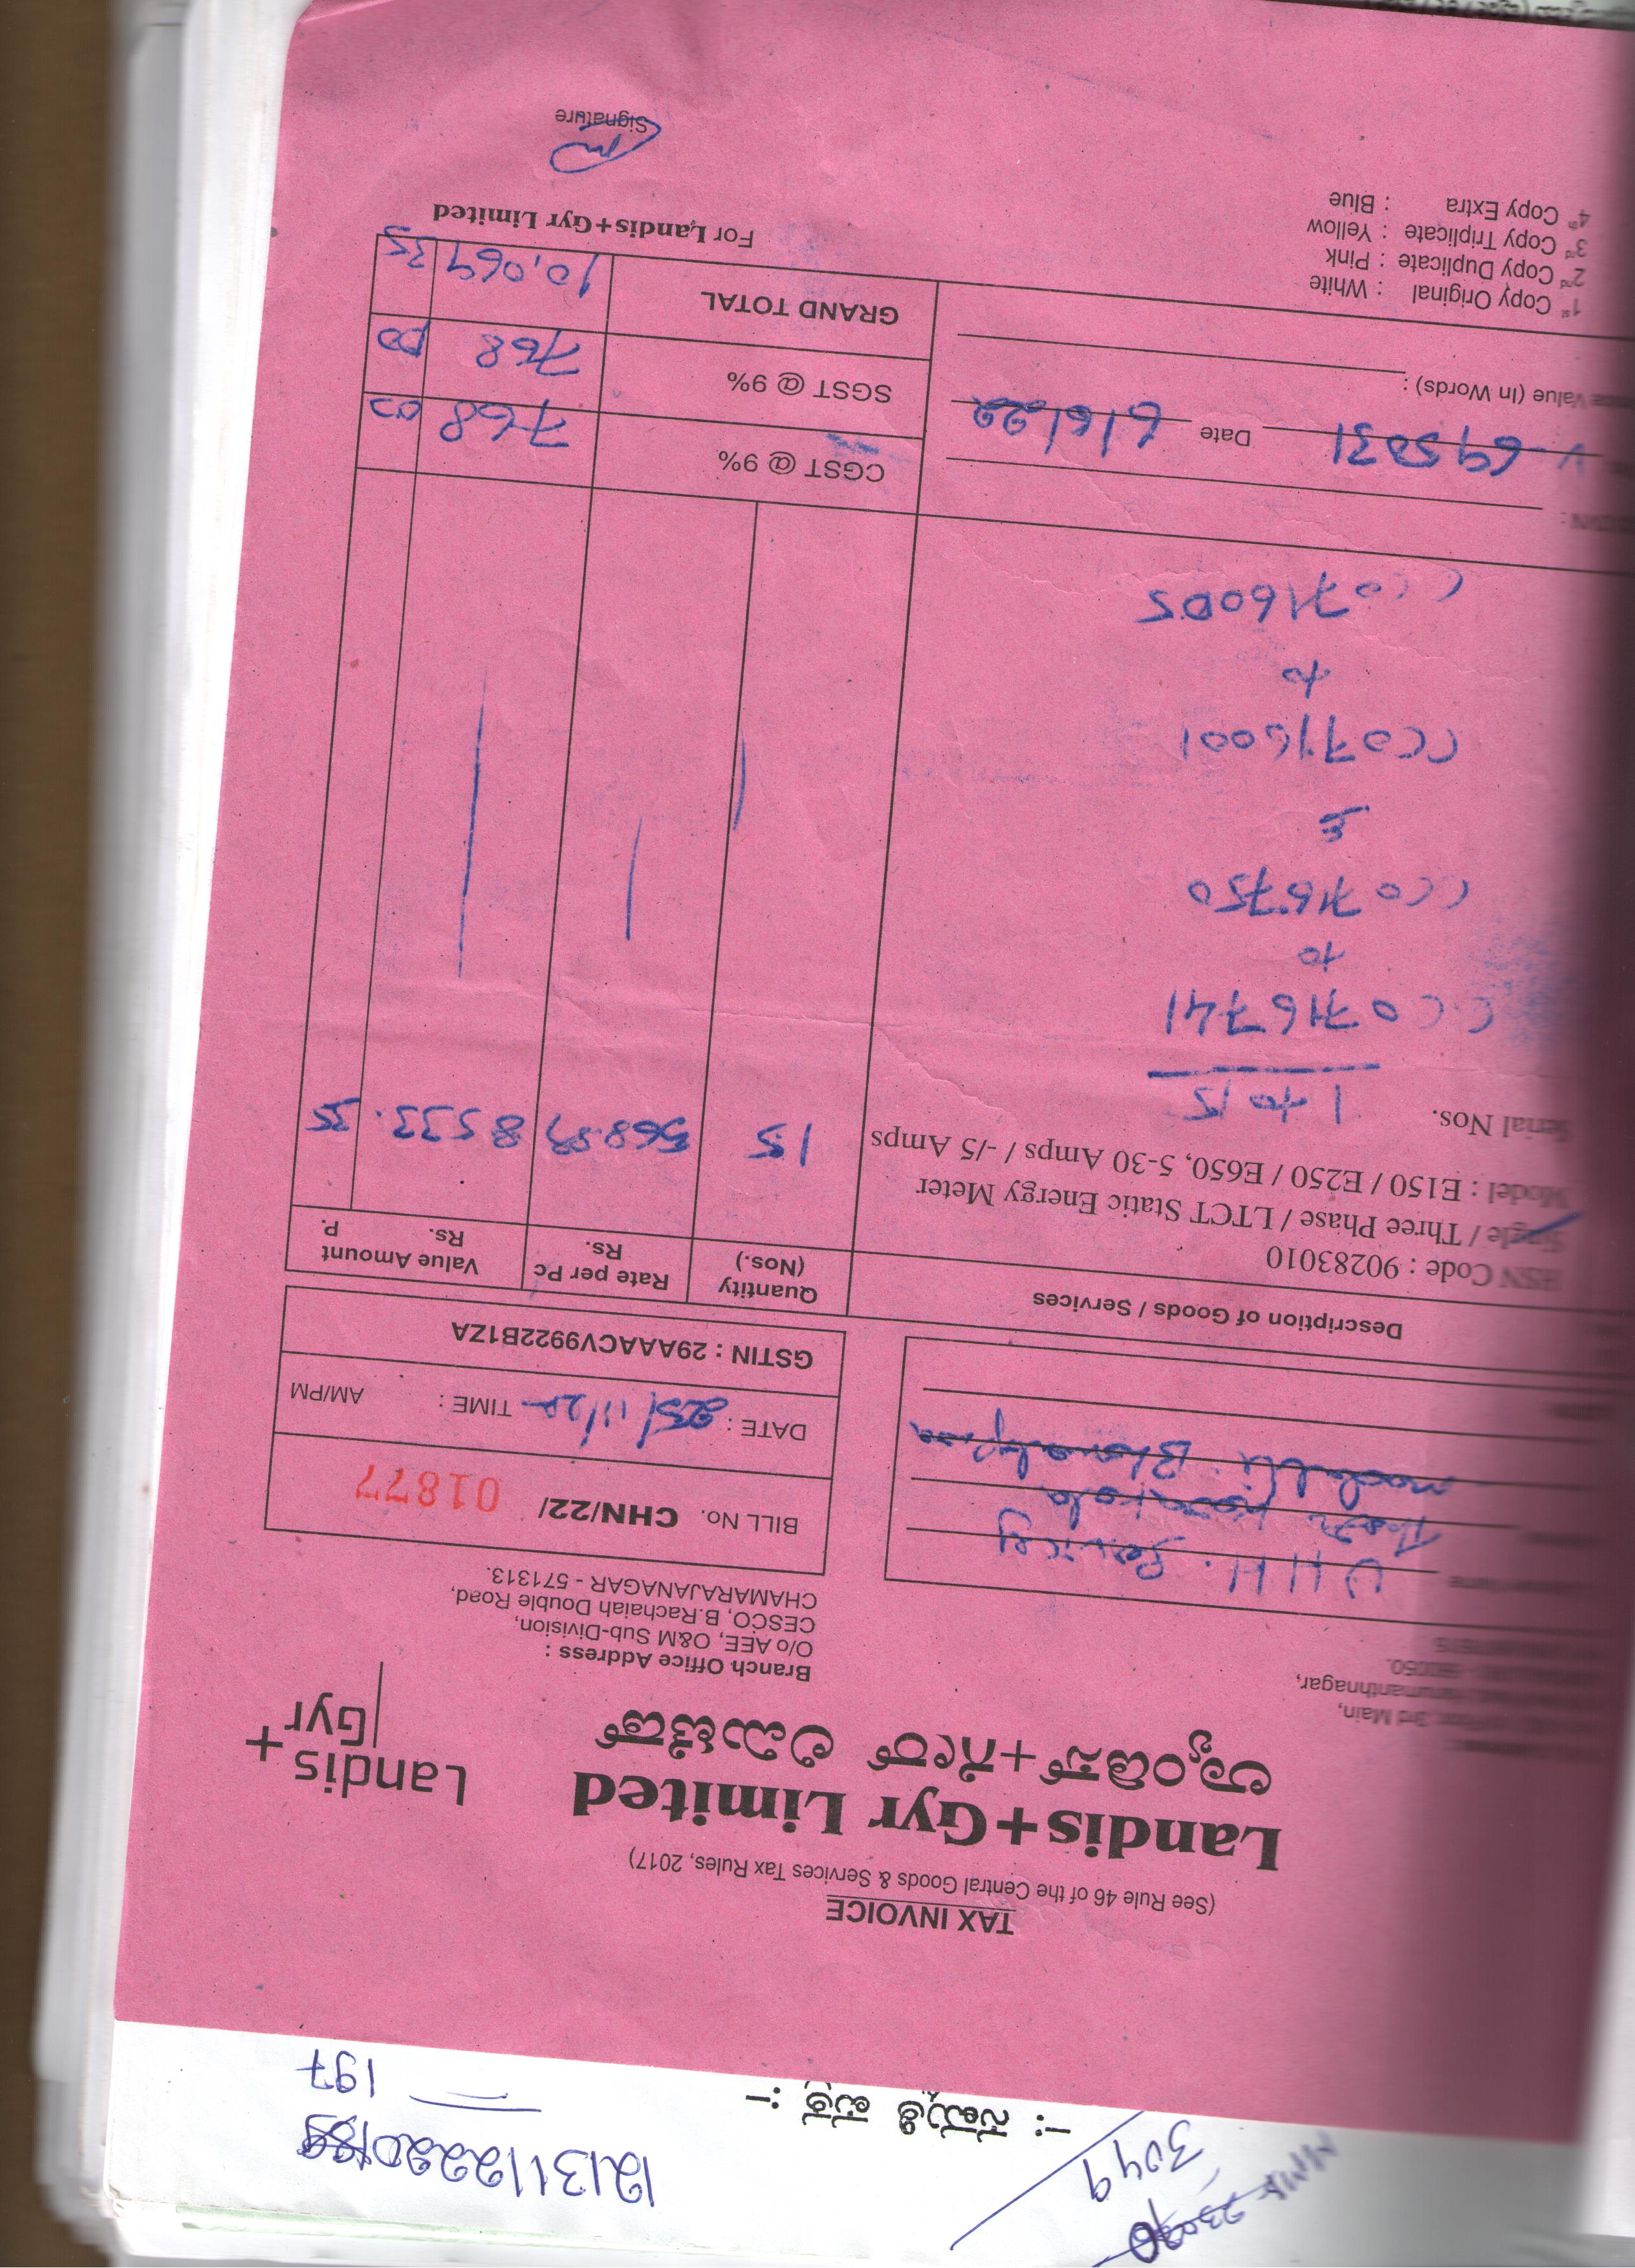 12131122201
197
3049
-: ಸಮ್ಮತಿ ಪತ್ರ :-
TAX INVOICE
(See Rule 46 of the Central Goods & Services Tax Rules, 2017)
Landis+Gyr Limited
ಲ್ಯಾಂಡಿಸ್+ಗೀರ್ ಲಿಮಿಟೆಡ್
Landis+
Gyr
3rd Main,
Hanumanthnagar,
560050.
Branch Office Address :
O/o AEE, O&M Sub-Division,
CESCO, B.Rachaiah Double Road,
CHAMARAJANAGAR - 571313.
BILL No. CHN/22/ 01877
DATE : 25/11/22 TIME : AM/PM
GSTIN : 29AAACV9922B1ZA
Description of Goods / Services
Quantity (Nos.)
Rate per Pc Rs.
Value Amount Rs. P.
HSN Code : 90283010
Single / Three Phase / LTCT Static Energy Meter
Model : E150 / E250 / E650, 5-30 Amps / -/5 Amps
15 568.89 8533. 35
Serial Nos. 1 to 15
CC0716741
to
CC0716750
&
CC0716001
to
CC0716005
CGST @ 9% 768 00
SGST @ 9% 768 00
GRAND TOTAL 10,069 35
695031 Date 6/6/22
Value (In Words) :
1st Copy Original : White
2nd Copy Duplicate : Pink
3rd Copy Triplicate : Yellow
4th Copy Extra : Blue
For Landis+Gyr Limited
Signature